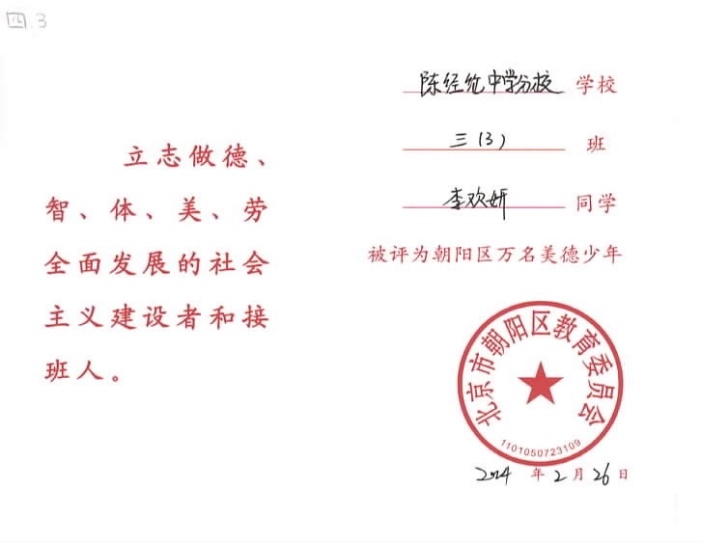 四.3
立志做德、
智、体、美、劳
全面发展的社会
主义建设者和接
班人。
陈经纶中学分校 学校
三(3) 班
李欢妍 同学
被评为朝阳区万名美德少年
北京市朝阳区教育委员会
1101050723109
2024 年 2 月 26 日